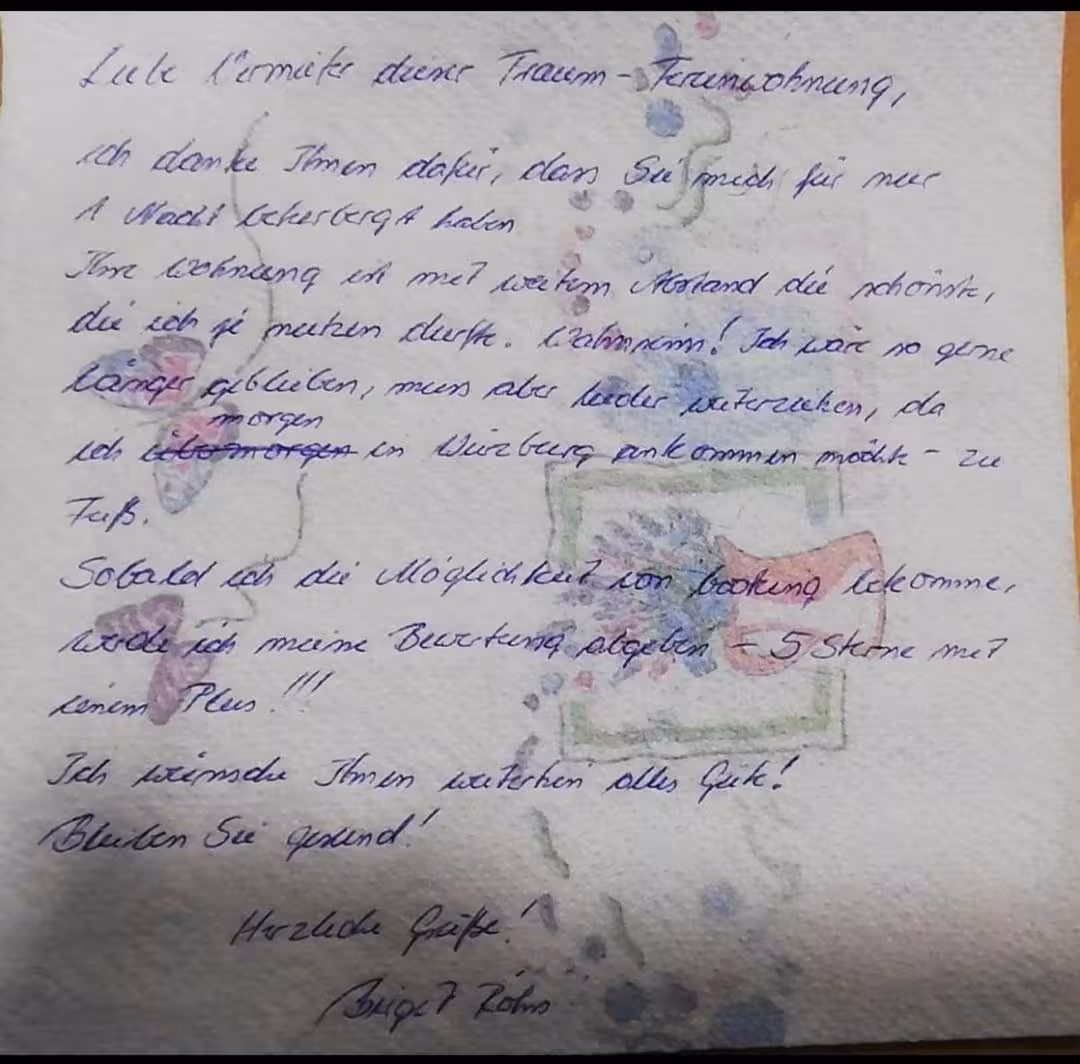 Liebe Vermieter dieser Traum-Ferienwohnung,
ich danke Ihnen dafür, dass Sie mich für nur
1 Nacht beherbergt haben
Ihre Wohnung ist mit weitem Abstand die schönste,
die ich je nutzen durfte. Wahnsinn! Ich wäre so gerne
länger geblieben, muss aber leider weiterziehen, da
morgen
ich übermorgen in Würzburg ankommen möchte - zu
Fuß.
Sobald ich die Möglichkeit von booking bekomme,
werde ich meine Bewertung abgeben - 5 Sterne mit
einem Plus!!!
Ich wünsche Ihnen weiterhin alles Gute!
Bleiben Sie gesund!
Herzliche Grüße!